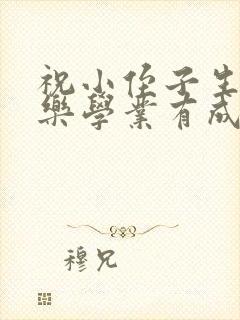 祝小侄子生
樂學業有成
穆兄